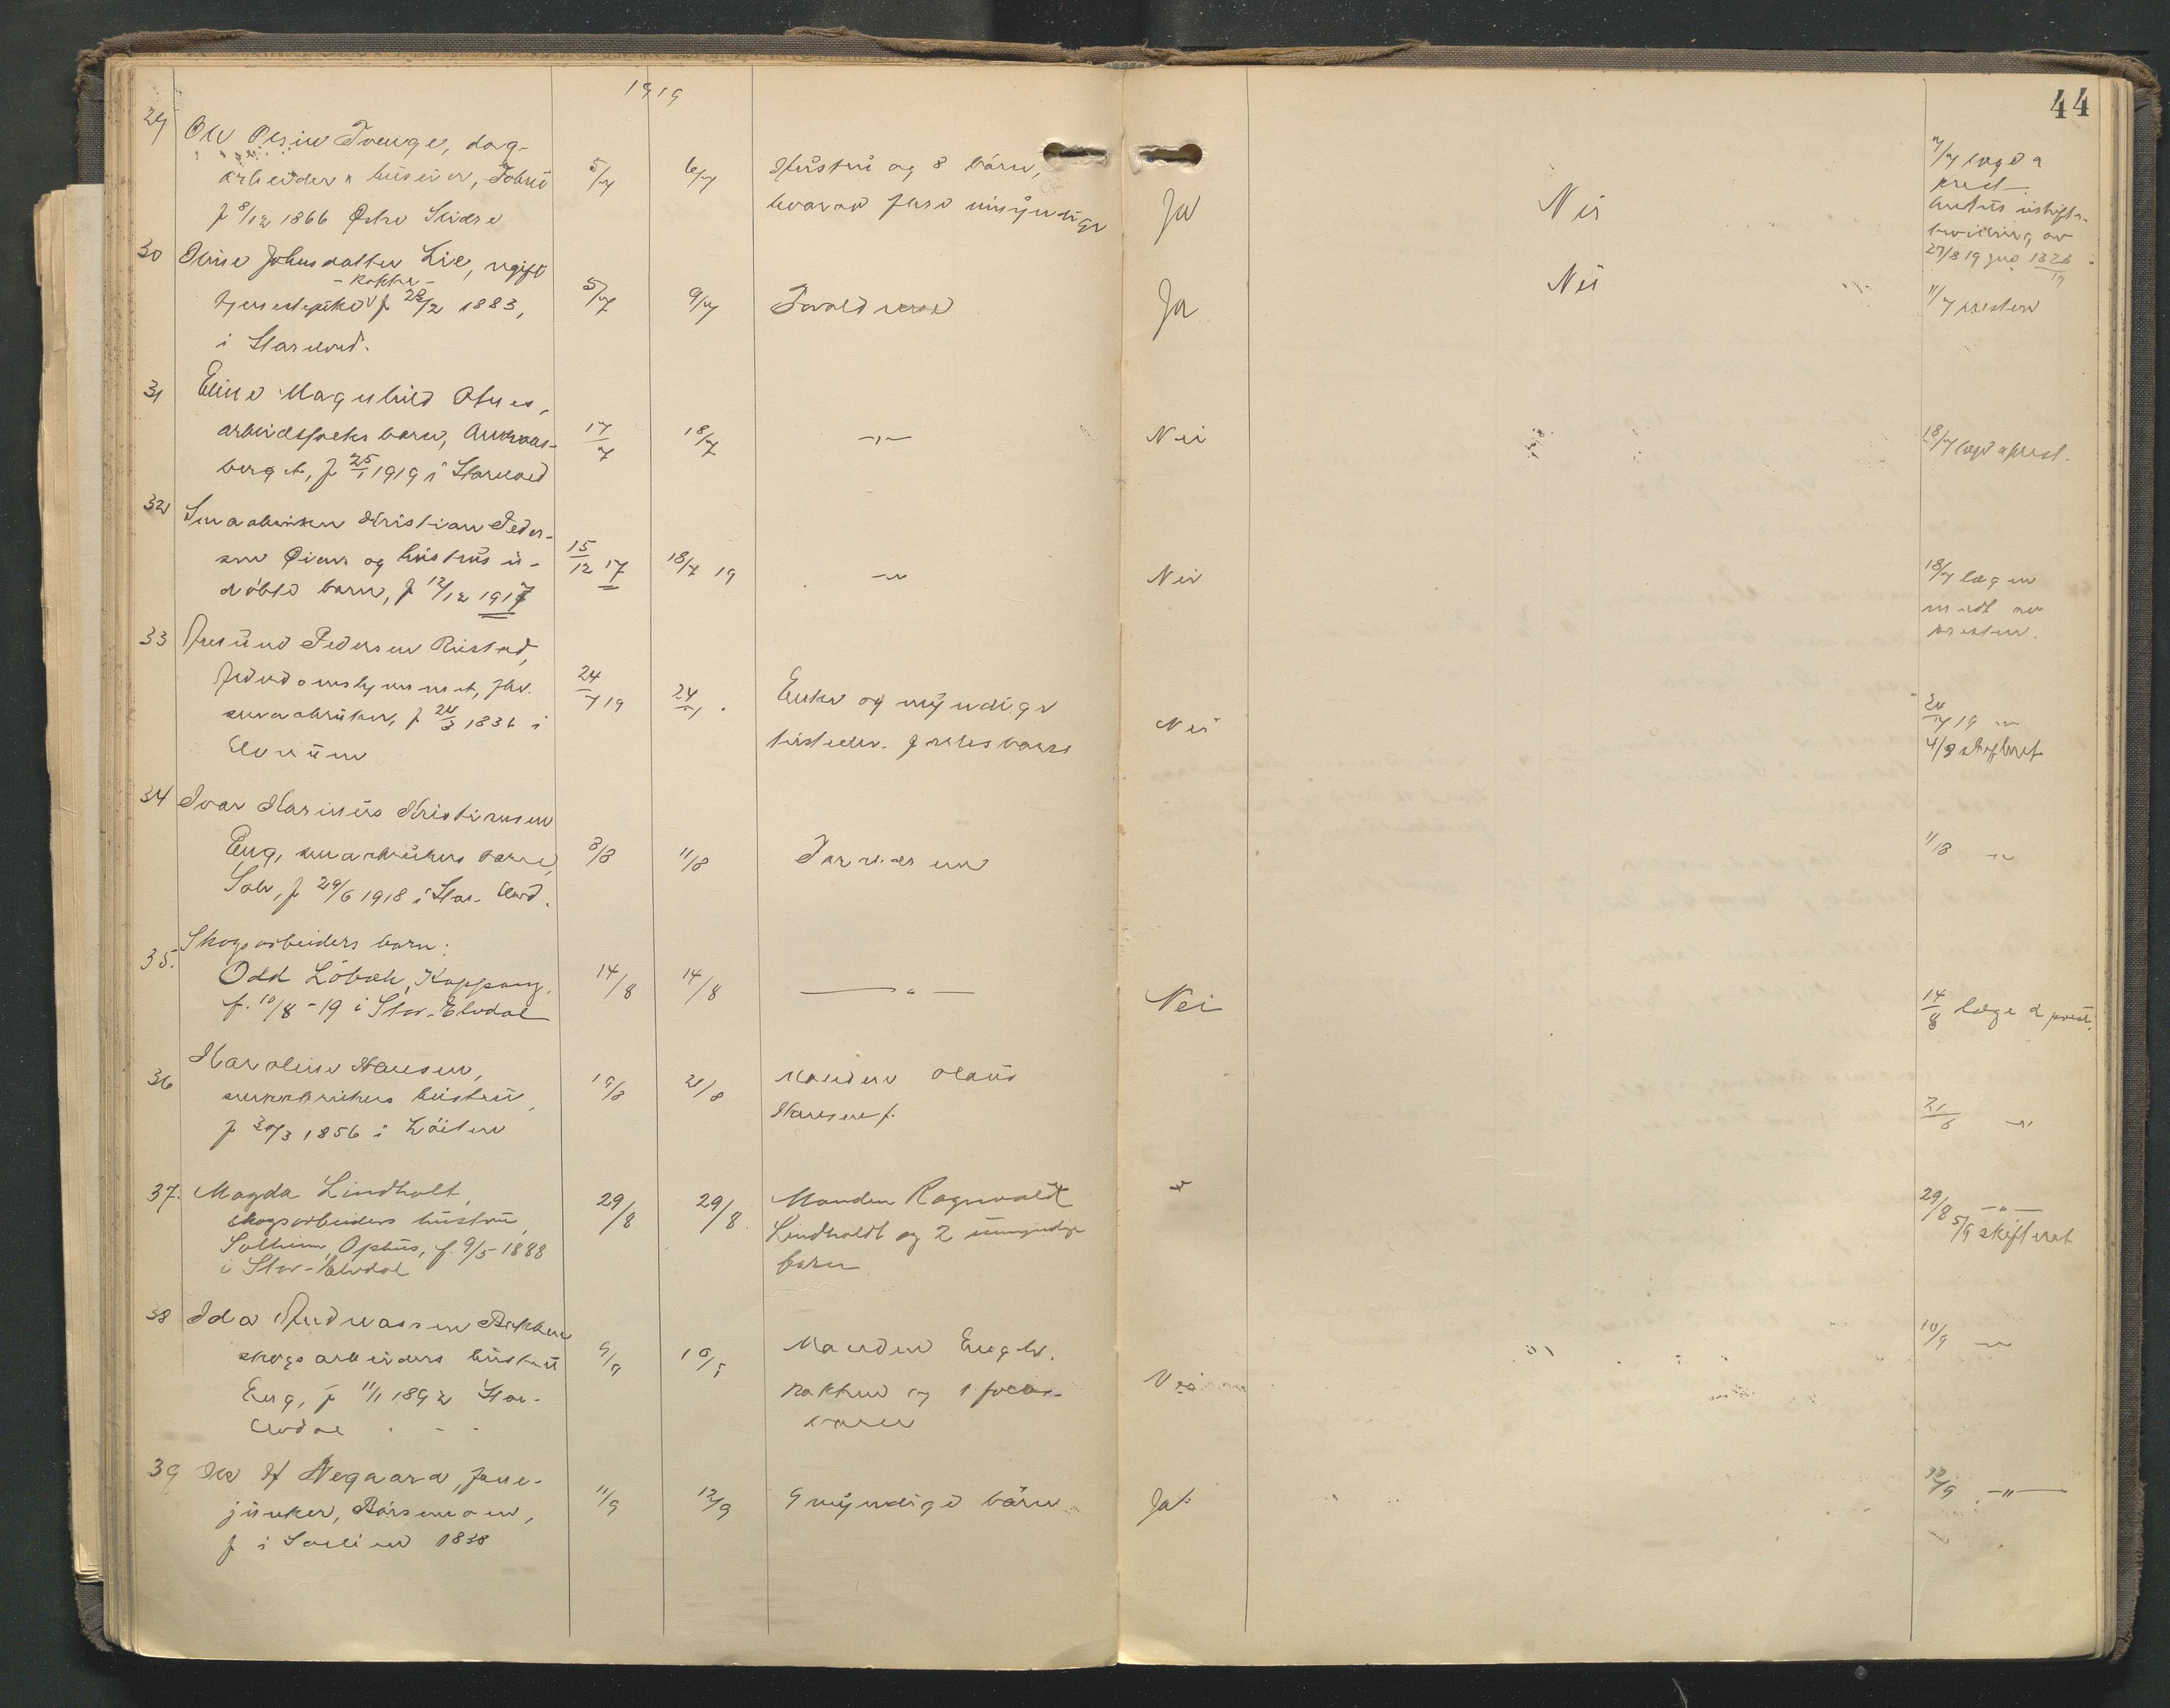 1919
44
29 Ole Olsen Tvenge, dag-
arbeider & huseier,
f 8/12 1866 Østre Slidre
5/7 6/7
Hustru og 8 barn,
hvorav flere umyndige
Ja
Nei
7/7 læge &
prest
30 Johnsdatter Lie, ugift
- kokke -
tjenestepike f 1883,
i Storelvd.
5/7 9/7
Forældrene
Ja
Nei
11/7 presten
31 Eline Magnhild Otnes,
arbeidsfolks barn,
berget, f 25/1 1919 i Storelvd
17/7 18/7
-"-
Nei
18/7 læge & prest.
32 Smaabruker Kristian Peder-
sen Øien og hustrus u-
døbte barn, f 12/12 1917
15/12 17 18/7 19
-"-
Nei
18/7 lægen
medt av
presten.
33 Amund Pedersen Ristad,
fhv.
smaabruker, f 24/3 1836 i
Elverum
24/7 19 24/7.
Enke og myndige
Nei
24/7 19 -"-
4/8 skifteret
34 Ivar Marinus Kristiansen
Eng, smaabrukers barn,
f 29/6 1918 i Stor-Elvd.
8/8 11/8
Forældrene
11/8 -"-
35. Skogsarbeiders barn:
Odd Löbæk, Koppang,
f. 10/8-19 i Stor-Elvdal
14/8 14/8
-"-
Nei
14/8 læge & prest.
36 Karoline Hansen,
smaabrukers hustru,
f 30/3 1856 i Löiten
19/8 21/8
Manden Olaus
Hansen f.
-"-
37. Magda Lindholt,
skogsarbeiders hustru,
Solheim, Ophus, f. 9/5-1888
i Stor-Elvdal
29/8 29/8.
Manden Ragnvald
Lindholdt og 2 umyndige
barn
29/8 -"-
5/9 skifteret
38 Ida Andreassen Bakken
skogsarbeiders hustru
Eng, f 11/1 1892 Stor-
Elvdal
9/9 10/9
Manden Engh.
Bakken og 1 
barn
Nei
10/9 -"-
39 Negaard, fane-
junker, Börsemoen,
f i 1838
11/9 12/9
9 myndige barn
Ja.
12/9 -"-